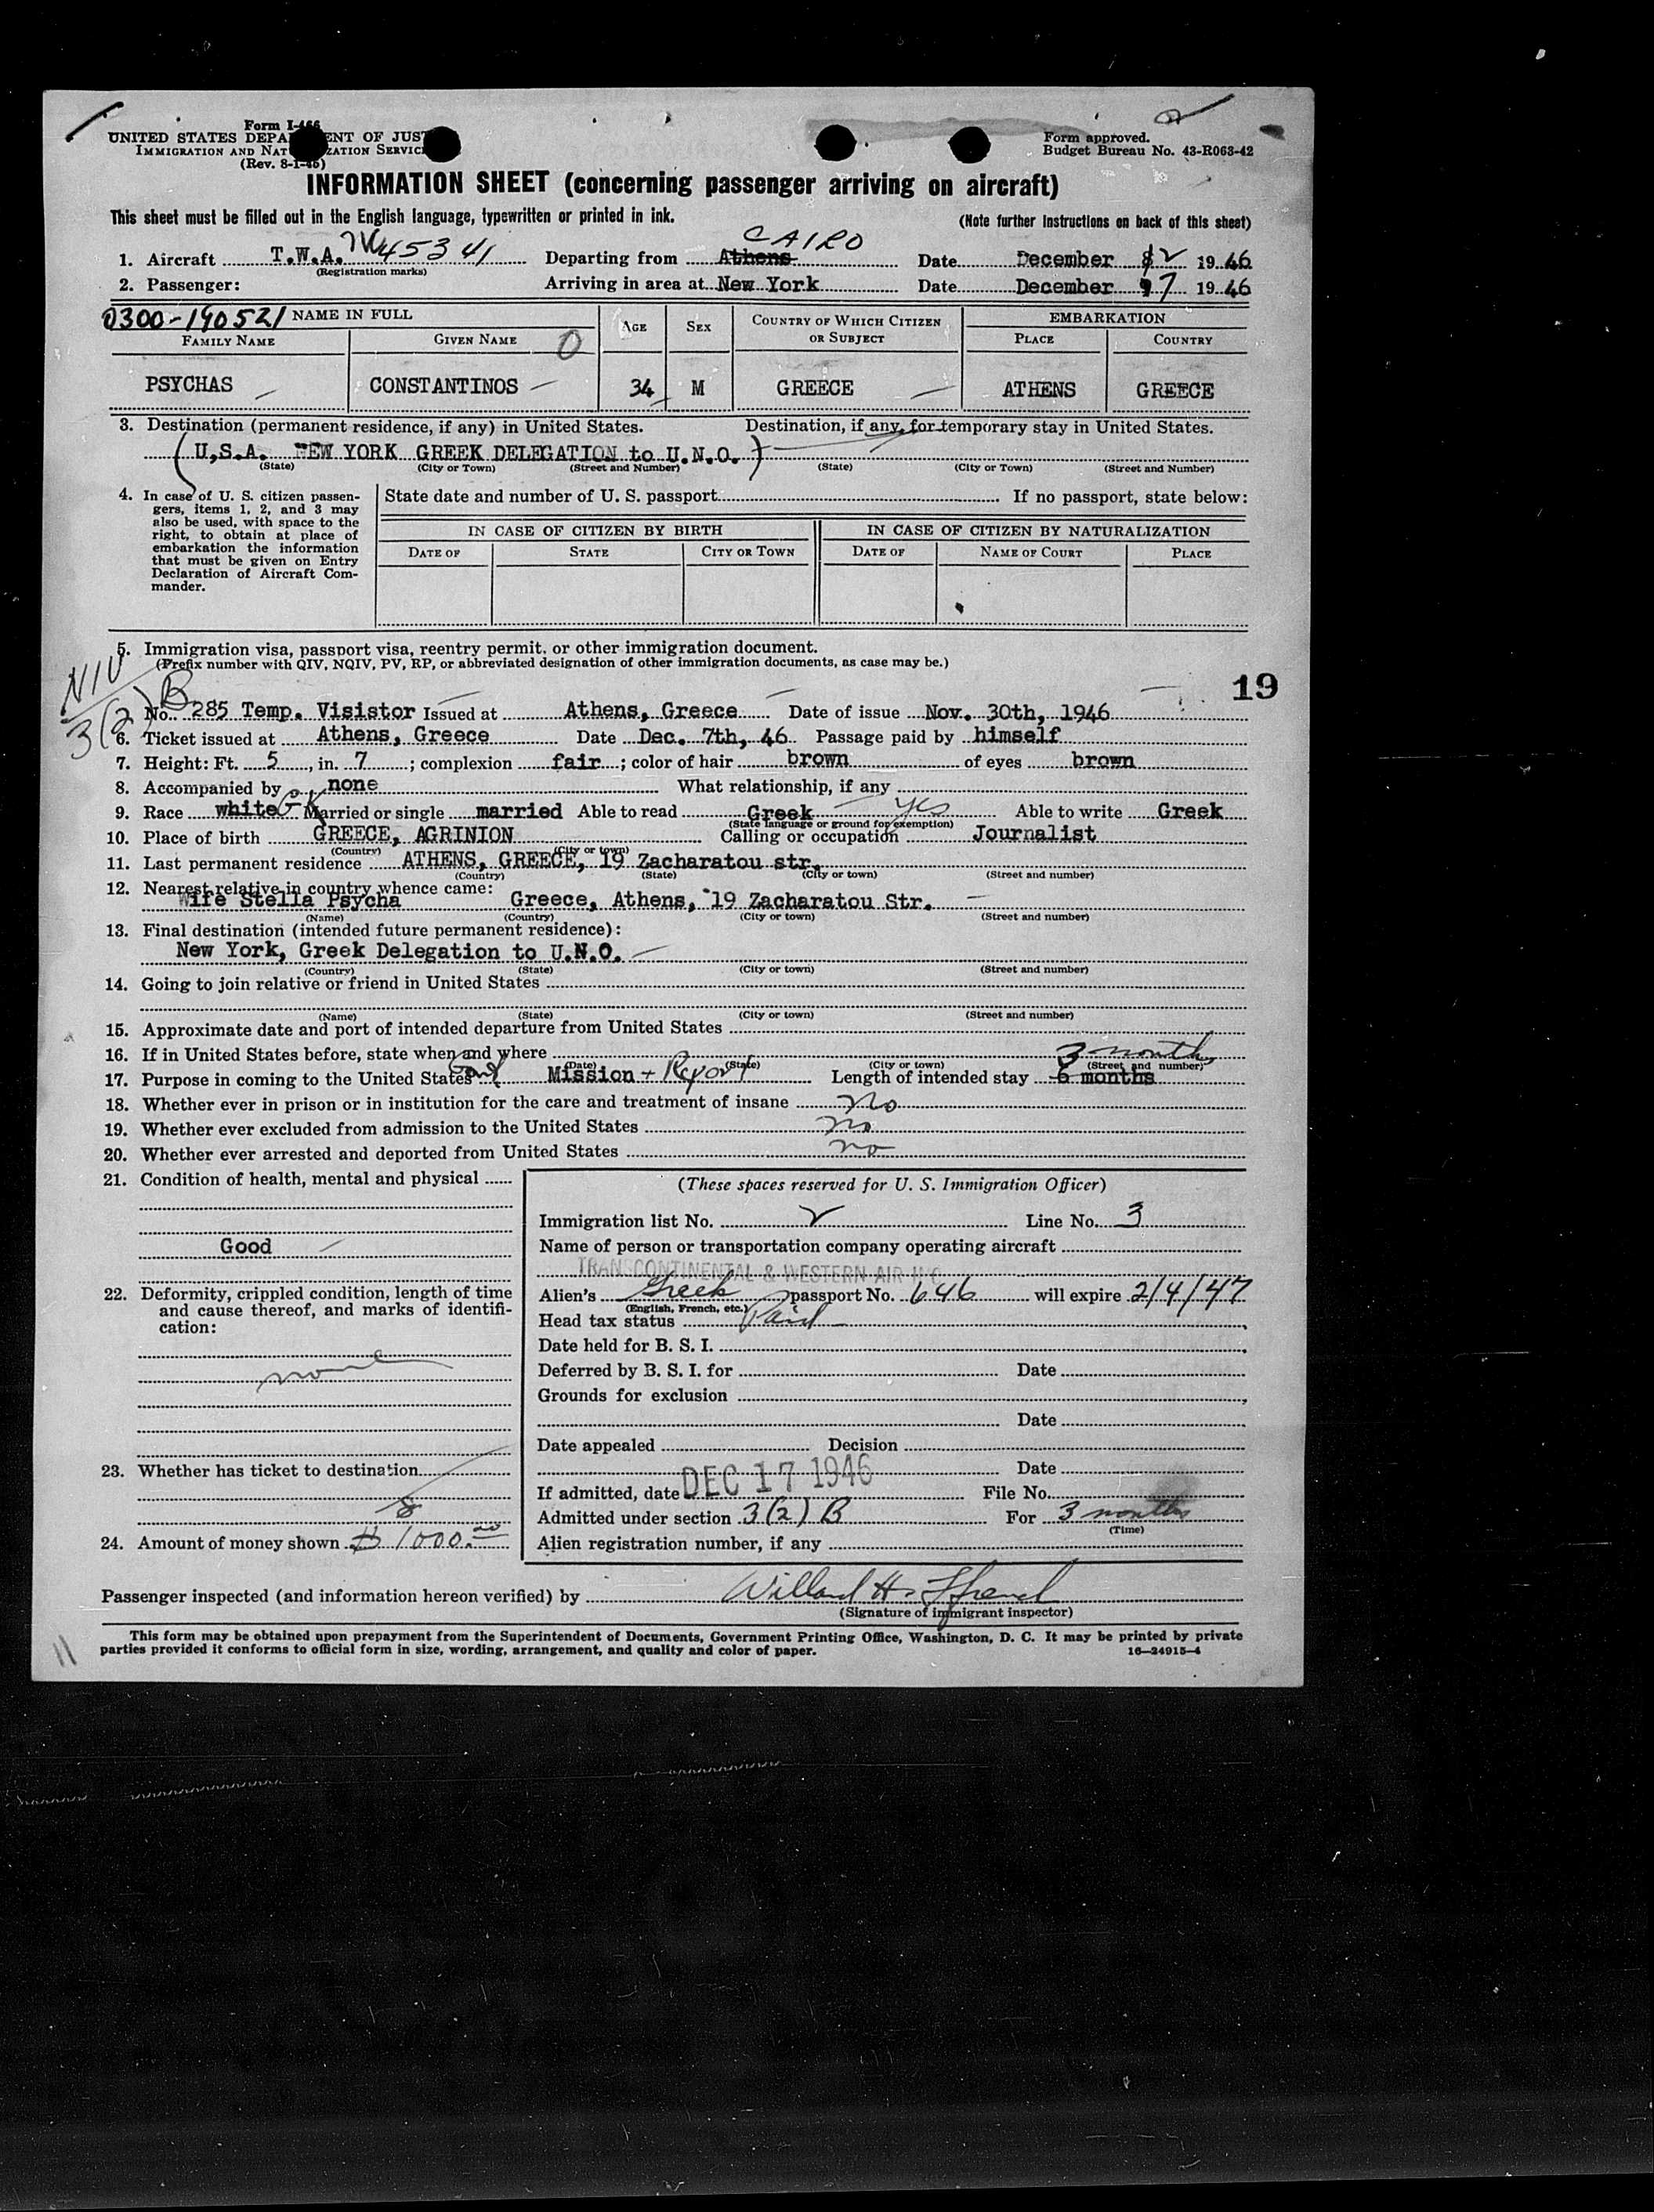 Form I-466
UNITED STATES DEPA ENT OF JUST
IMMIGRATION AND NAT ZATION SERVIC
(Rev. 8-1-46)
Form approved.
Budget Bureau No. 43-R063-42
INFORMATION SHEET (concerning passenger arriving on aircraft)
This sheet must be filled out in the English language, typewritten or printed in ink. (Note further instructions on back of this sheet)
CAIRO
1. Aircraft T.W.A. 45341 Departing from Athens Date December 12 1946
(Registration marks)
2. Passenger: Arriving in area at New York Date December 17 1946
0300-190521 NAME IN FULL AGE SEX COUNTRY OF WHICH CITIZEN OR SUBJECT EMBARKATION
FAMILY NAME GIVEN NAME 0 PLACE COUNTRY
PSYCHAS CONSTANTINOS 34 M GREECE ATHENS GREECE
3. Destination (permanent residence, if any) in United States. Destination, if any, for temporary stay in United States.
(U.S.A. NEW YORK GREEK DELEGATION to U.N.O.)
(State) (City or Town) (Street and Number) (State) (City or Town) (Street and Number)
4. In case of U. S. citizen passen-
gers, items 1, 2, and 3 may
also be used, with space to the
right, to obtain at place of
embarkation the information
that must be given on Entry
Declaration of Aircraft Com-
mander.
State date and number of U. S. passport If no passport, state below:
IN CASE OF CITIZEN BY BIRTH IN CASE OF CITIZEN BY NATURALIZATION
DATE OF STATE CITY OR TOWN DATE OF NAME OF COURT PLACE
5. Immigration visa, passport visa, reentry permit, or other immigration document.
(Prefix number with QIV, NQIV, PV, RP, or abbreviated designation of other immigration documents, as case may be.)
NIV
3(2) B
19
No. 285 Temp. Visistor Issued at Athens, Greece Date of issue Nov. 30th, 1946
6. Ticket issued at Athens, Greece Date Dec. 7th, 46 Passage paid by himself
7. Height: Ft. 5, in. 7; complexion fair; color of hair brown of eyes brown
8. Accompanied by none What relationship, if any
9. Race white Married or single married Able to read Greek yes Able to write Greek
(State language or ground for exemption)
10. Place of birth GREECE, AGRINION Calling or occupation Journalist
(Country) (City or town)
11. Last permanent residence ATHENS, GREECE, 19 Zacharatou str.
(Country) (State) (City or town) (Street and number)
12. Nearest relative in country whence came:
Wife Stella Psycha Greece, Athens, 19 Zacharatou Str.
(Name) (Country) (City or town) (Street and number)
13. Final destination (intended future permanent residence):
New York, Greek Delegation to U.N.O.
(Country) (State) (City or town) (Street and number)
14. Going to join relative or friend in United States
(Name) (State) (City or town) (Street and number)
15. Approximate date and port of intended departure from United States
16. If in United States before, state when and where
(Date) (State) (City or town) (Street and number)
3 months
17. Purpose in coming to the United States Mission + Length of intended stay 6 months
18. Whether ever in prison or in institution for the care and treatment of insane No
19. Whether ever excluded from admission to the United States no
20. Whether ever arrested and deported from United States no
21. Condition of health, mental and physical
Good
22. Deformity, crippled condition, length of time
and cause thereof, and marks of identifi-
cation:
none
23. Whether has ticket to destination
24. Amount of money shown $1000.00
(These spaces reserved for U. S. Immigration Officer)
Immigration list No. 2 Line No. 3
Name of person or transportation company operating aircraft
TRANSCONTINENTAL & WESTERN AIR INC
Alien's Greek passport No. 646 will expire 2/4/47
(English, French, etc.)
Head tax status Paid
Date held for B. S. I.
Deferred by B. S. I. for Date
Grounds for exclusion
Date
Date appealed Decision
Date
If admitted, date DEC 17 1946 File No.
Admitted under section 3(2) B For 3 months
(Time)
Alien registration number, if any
Passenger inspected (and information hereon verified) by Willard H.
(Signature of immigrant inspector)
This form may be obtained upon prepayment from the Superintendent of Documents, Government Printing Office, Washington, D. C. It may be printed by private
parties provided it conforms to official form in size, wording, arrangement, and quality and color of paper. 16—24915-4
11